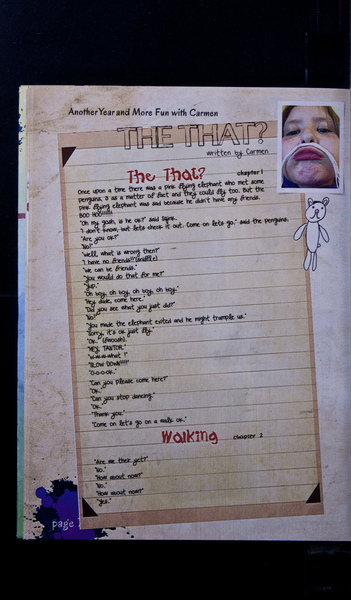 Another Year and More Fun with Carmen
THE THAT?
written by Carmen
The That?
chapter 1
Once upon a time there was a pink flying elephant who met some
penguins, 3 as a matter of fact and they could fly too. But the
pink flying elephant was sad because he didn't have any friends.
BOO
"Oh my gosh, is he ok?" said
"I don't know, but lets check it out. Come on lets go." said the penguins.
"Are you ok?"
"No!"
"Well what is wrong then?"
"I have no friends!!!(sniffle)
"We can be friends."
"You would do that for me?"
"Yup."
"Oh boy, oh boy, oh boy, oh boy."
"Hey dude, come here."
"Did you see what you just did?"
"No!"
"You made the elephant exited and he might trample us."
"Sorry, it's ok just fly."
"Ok." (Swoosh).
"HEY, TANTOR."
"w-w-w-what !"
"SLOW DOWN!!!!!"
"O-o-o-ok."
"Can you please come here?"
"Ok."
"Can you stop dancing."
"Ok."
"Thank you."
"Come on let's go on a walk ok."
Walking
chapter 2
"Are we there yet?"
"No."
"How about now?"
"No."
"How about now?"
"Yes."
page